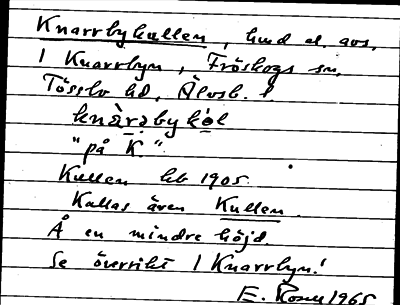 Knarrbykullen, hmd el. avs.
I Knarrbyn, Fröskogs sn,
Tössbo hd, Älvsb. l.
knàrabykól
"på K."
Kullen lht 1905.
Kallas även Kullen.
Å en mindre höjd.
Se översikt I Knarrbyn!
E. Rosen 1965